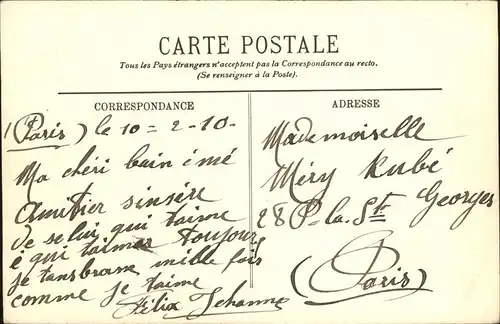 CARTE POSTALE
Tous les Pays étrangers n'acceptent pas la Correspondance au recto.
(Se renseigner à la Poste).
CORRESPONDANCE
(Paris) le 10=2-10-
Ma chéri bain émé
Amitier sinsére
de selui qui taime
é qui taimera toujour
je tansbrasse mille fois
comme je taime
Félix Jehanne
ADRESSE
Mademoiselle
Méry Kubé
28 P- la- St Georges
(Paris)